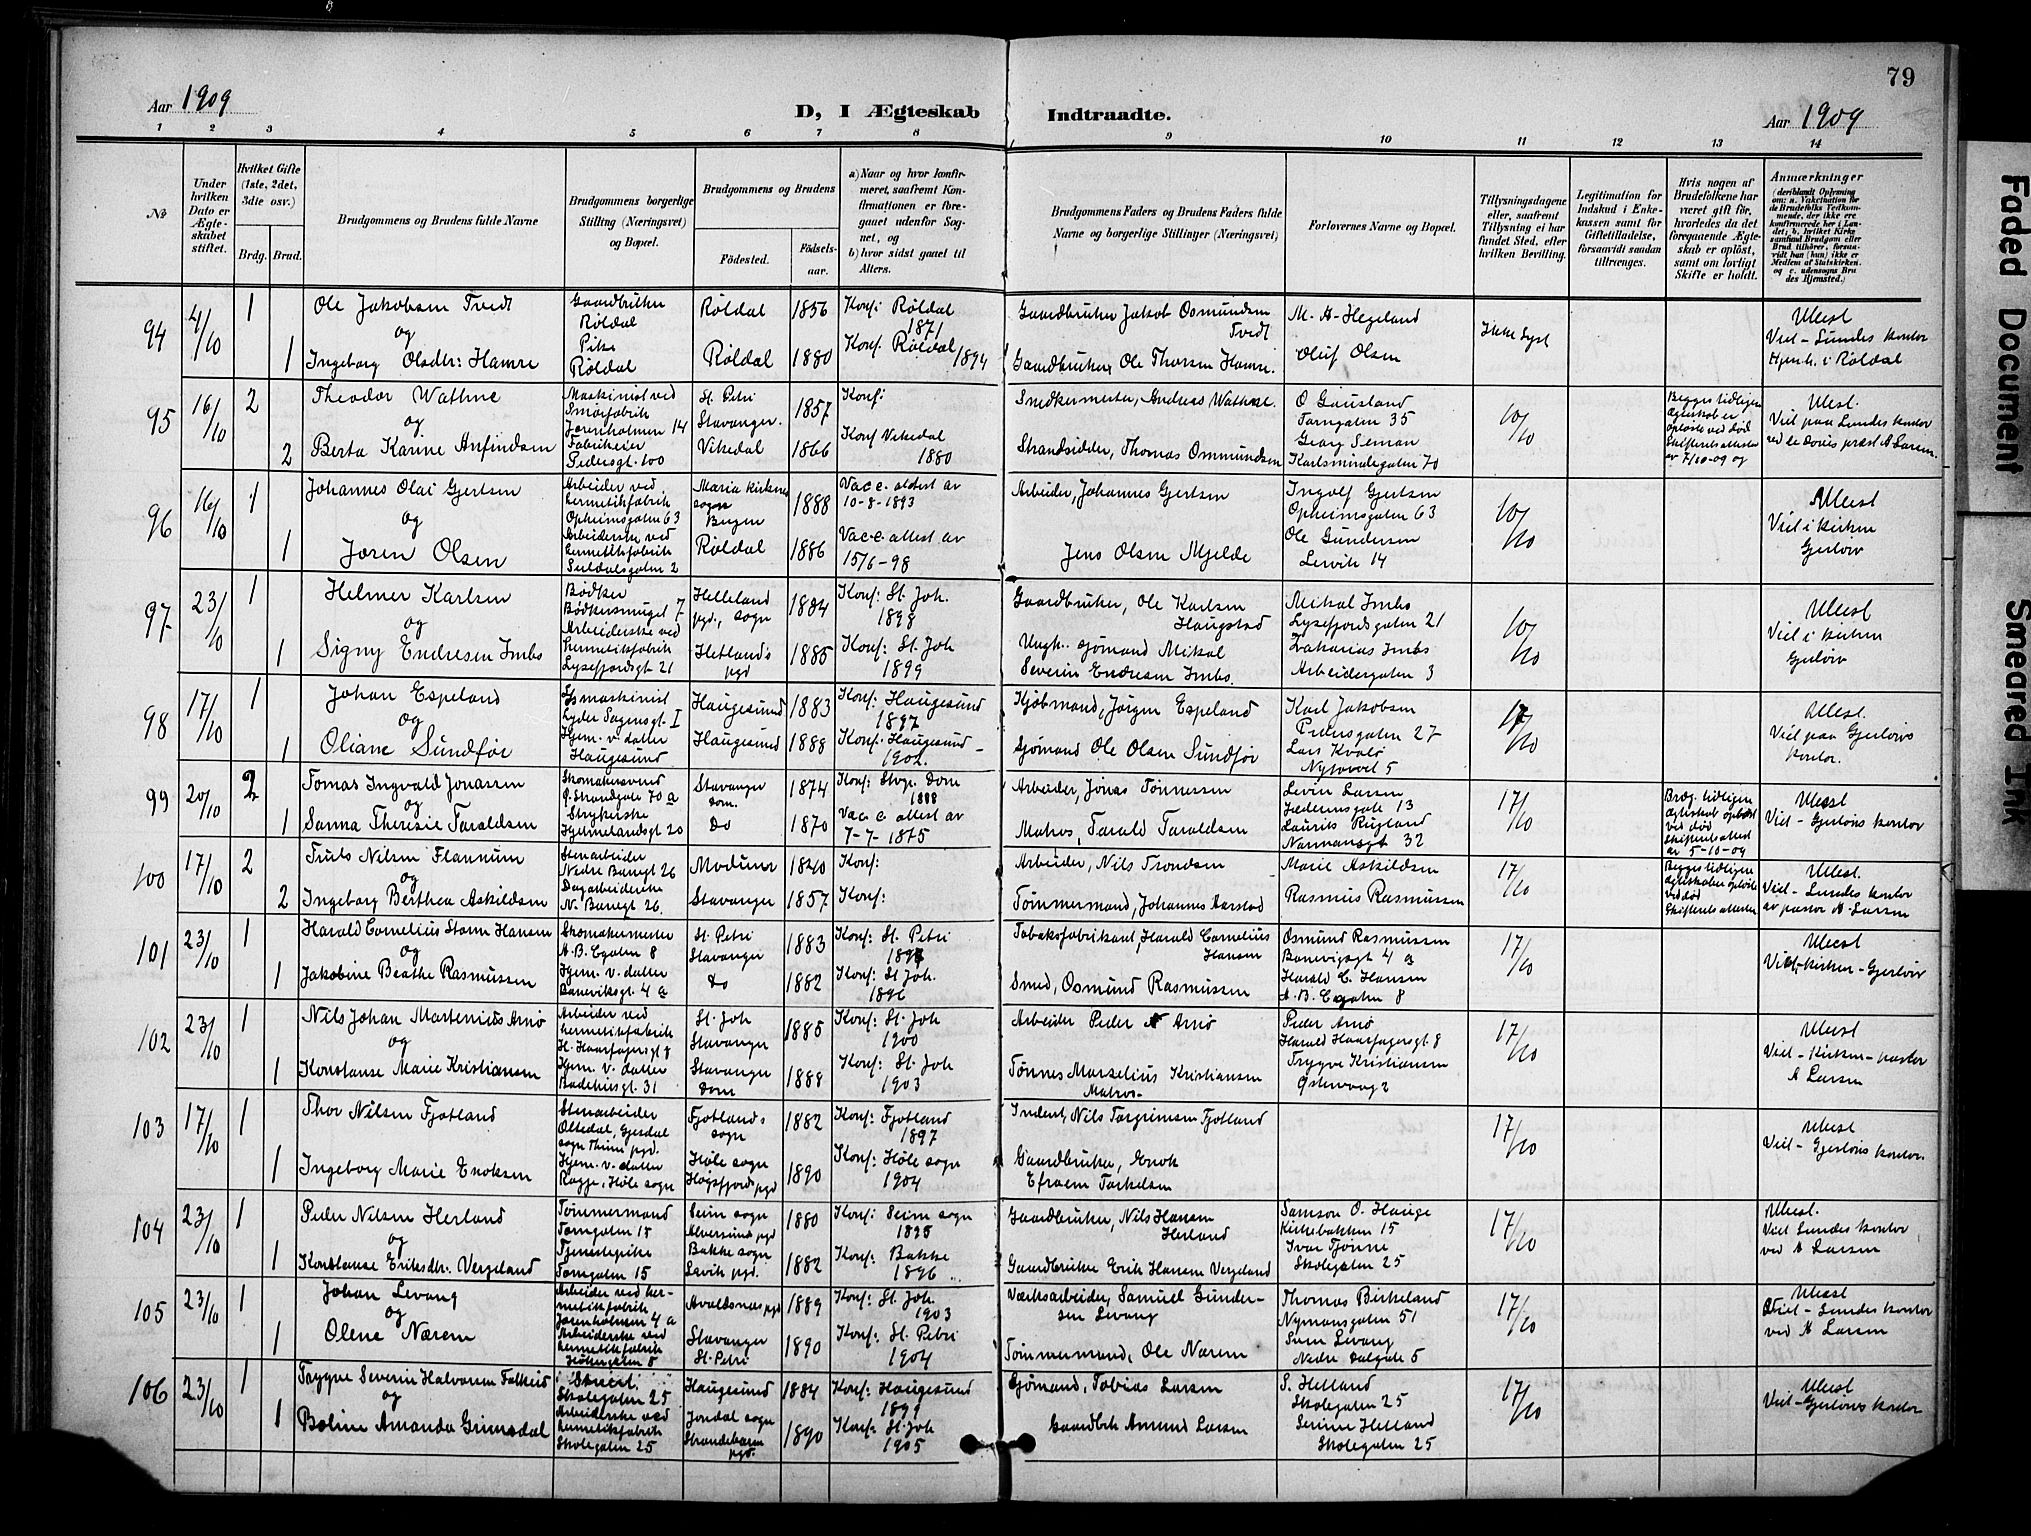 79
Aar 1909
D, I Ægteskab Indtraadte.
Aar 1909
1 2 3 4 5 6 7 8 9 10 11 12 13 14
No
Under hvilken Dato er Ægteskabet stiftet.
Hvilket Gifte (1ste, 2det, 3die osv.)
Brdg. Brud.
Brudgommens og Brudens fulde Navne
Brudgommens borgerlige Stilling (Næringsvei) og Bopæl.
Brudgommens og Brudens
Födested.
Födsels-aar.
a) Naar og hvor konfirmeret, saafremt Konfirmationen er foregaaet udenfor Sognet, og
b) hvor sidst gaaet til Alters.
Brudgommens Faders og Brudens Faders fulde Navne og borgerlige Stillinger (Næringsvei)
Forlovernes Navne og Bopæl.
Tillysningsdagene eller, saafremt Tillysning ei har fundet Sted, efter hvilken Bevilling.
Legitimation for Indskud i Enkekassen samt för Giftetilladelse, forsaavidt saadan tiltrænges.
Hvis nogen af Brudefolkene har været gift för, hvorledes da det foregaaende Ægteskab er oplöst, samt om lovligt Skifte er holdt.
Anmærkninger
(deriblandt Oplysning om: a. Vakcination för de Brudefolks Vedkommende, der ikke ere konfirmerede her i Landet; b. hvilket Kirkesamfund Brudgom eller Brud tilhörer, forsaavidt han (hun) ikke er Medlem af Statskirken. og c. udensogns Brudes Hjemsted.)
94 4/10 1 Ole Jakobsen Tvedt Gaardbruker Røldal Røldal 1856 Konf: Røldal 1871 Gaardbruker Jakob Osmundsen Tvedt M. A. Hegeland Ikke lyst
og
1 Ingeborg Olsdtr: Hamre Pike Røldal Røldal 1880 Konf. Røldal 1894 Gaardbruker Ole Thorsen Hamre. Oluf Olsen
Viel - Lundes kontor
Hjemh. i Røldal
95 16/10 2 Theodor Wathne Maskinist ved Smørfabrik Jorenholmen 14 St. Petri Stavanger. 1857 Konf: Snedkermester, Andreas Wathne. O Gausland Tarngaten 35 10/10
og
2 Berta Karine Anfindsen Pedersgt. 100 Vikedal 1866 Konf Vikedal 1880 Strandsidder, Thomas Ommundsen Georg Seman Karlsmindegaten 70
Begges tidligere ægteskab er opløste ved død Skifterets attester av 7/10-09 og
Viel paa Lundes kontor
96 16/10 1 Johannes Olai Gjertsen Arbeider ved hermetikfabrik Opheimsgaten 63 Maria kirkes sogn Bergen 1888 Vacc. attest av 10-8-1893 Arbeider, Johannes Gjertsen Ingolf Gjertsen Opheimsgaten 63 10/10
og
1 Joren Olsen Arbeiderske ved hermetikfabrik Suldalsgaten 2 Røldal 1886 Vacc. attest av 15/6-98 Jens Olsen Mjelde Ole Gundersen Lervik 14
Viel i kirken
Gjerløw
97 23/10 1 Helmer Karlsen Bødker Bødkersmuget 7 Helleland pgd., sogn 1884 Konf: St. Joh. 1898 Gaardbruker, Ole Karlsen Haugstad Mikal Imbs Lysefjordsgaten 21 10/10
og
1 Signy Endresen Imbs Arbeiderske ved hermetikfabrik Lysefjordsgt. 21 Hetland's pgd 1885 Konf: St. Joh 1899 Ungk.. sjømand Mikal Severin Endresen Imbs. Zakarias Imbs Arbeidergaten 3
Viel i kirken
Gjerløw
98 17/10 1 Johan Espeland maskinist Lyder Sagensgt. I Haugesund 1883 Konf: Haugesund 1897 Kjøbmand, Jørgen Espeland Karl Jakobsen Pedersgaten 27 17/10
og
1 Oliane Sundfør Hjem. v. datter Haugesund Haugesund 1888 Konf: Haugesund 1902. Sjømand Ole Olsen Sundfør Lars Kvalø Nytorvet 5
Viel paa Gjerløws kontor.
99 20/10 2 Tomas Ingvald Jonassen Skomakersvend Ø. Strandgate 70 a Stavanger dom. 1874 Konf: Stvgr. Dom 1888 Arbeider, Jonas Tønnessen Levin Larsen Jædernsgate 13 17/10
og
1 Sanna Theresie Taraldsen Strykerske Hjelmelandsgt 20 Do 1870 Vacc. attest av 7-7-1875 Matros, Tarald Taraldsen Laurits Rugland Normansgt 32
Brdg. tidligere ægteskab opløst ved død Skifterets attest av 5-10-09
Viel - Gjerløws kontor
100 17/10 2 Truls Nilsen Flannum Stenarbeider Nedre Banegt 26 Modum 1840 Konf: Arbeider, Nils Trondsen Marie Askildsen 17/10
og
2 Ingeborg Berthea Askildsen Dagarbeiderske N. Banegt 26. Stavanger 1857 Konf: Tømmermand, Johannes Aarstad Rasmus Rasmussen
Begges tidligere ægteskaber opløste ved død Skifterets attester
Viel - Lundes kontor av pastor A Larsen
101 23/10 1 Harald Cornelius Storm Hansen Skomakermester A.B.Cgaten 8 St. Petri Stavanger 1883 Konf: St. Petri 1897 Tobaksfabrikant, Harald Cornelius Hansen Osmund Rasmussen Banevigsgt 4 a 17/10
og
1 Jakobine Beathe Rasmussen Hjem. v. datter Baneviksgt. 4 a Do 1882 Konf: St Joh. 1896 Smed, Osmund Rasmussen Harald C. Hansen A.B.Cgaten 8
Viel, kirken - Gjerløw
102 23/10 1 Nils Johan Martenius Arnø Arbeider ved hermetikfabrik H. Haarfagersgt 8 St. Joh Stavanger 1885 Konf: St. Joh 1900 Arbeider Peder N Arnø Peder Arnø Harald Haarfagersgt. 8 17/10
og
1 Konstanse Marie Kristiansen Hjem. v. datter Badehusgt. 31 Stavanger Dom 1888 Konf: St. Joh 1903 Tønnes Marselius Kristiansen Matros- Trygve Kristiansen Østervaag 2
Viel - Kirken - pastor A Larsen
103 17/10 1 Thor Nilsen Fjotland Stenarbeider Oltedal, Gjesdal sogn Thime pgd. Fjotland's sogn 1882 Konf: Fjotland 1897 Inderst, Nils Torgrimsen Fjotland 17/10
1 Ingeborg Marie Enoksen Hjem. v. datter Høle sogn Høle sogn Høgsfjords pgd 1890 Konf: Høle sogn 1904 Gaardbruker, Enok Efraem Torkelsen
Viel - Gjerløws kontor.
104 23/10 1 Peder Nilsen Herland Tømmermand Torngaten 15 Seim sogn Alversund pgd 1880 Konf: Seim sogn 1895 Gaardbruker, Nils Hansen Herland Samson O. Hauge Kirkebakken 15 17/10
og
1 Konstanse Eriksdtr. Vergeland Tjenestepike Torngaten 15 Bakke sogn Lavik pgd. 1882 Konf: Bakke 1896 Gaardbruker Erik Hansen Vergeland Ivar Tjønne Skolegaten 25
Viel Lundes kontor ved A Larsen
105 23/10 1 Johan Levang Arbeider ved hermetikfabrik Jorenholmen 4 a Avaldsnes pgd 1889 Konf: St. Joh 1903 Værksarbeider, Samuel Gundersen Levang Thomas Birkeland Nymansgaten 51 17/10
og
1 Olene Nærem Arbeiderske ved hermetikfabrik Stavanger St. Petri 1890 Konf: St. Petri 1904 Tømmermand, Ole Nærem Sven Levang Nedre Dalgate 5
Viel - Lundes kontor ved A Larsen
106 23/10 1 Trygve Severin Halvorsen Falkeid Skolegaten 25 Haugesund 1884 Konf: Haugesund 1899 Sjømand, Tobias Larsen S. Helland Skolegaten 25 17/10
og
1 Boline Amanda Grimsdal Arbeiderske ved hermetikfabrik Skolegaten 25 Jondal sogn Strandebarm pgd. 1890 Konf: St. Joh 1905 Gaardbrk Amund Larsen Serine Helland Skolegaten 25
Viel - Gjerløws kontor
Faded Document
Smeared Ink